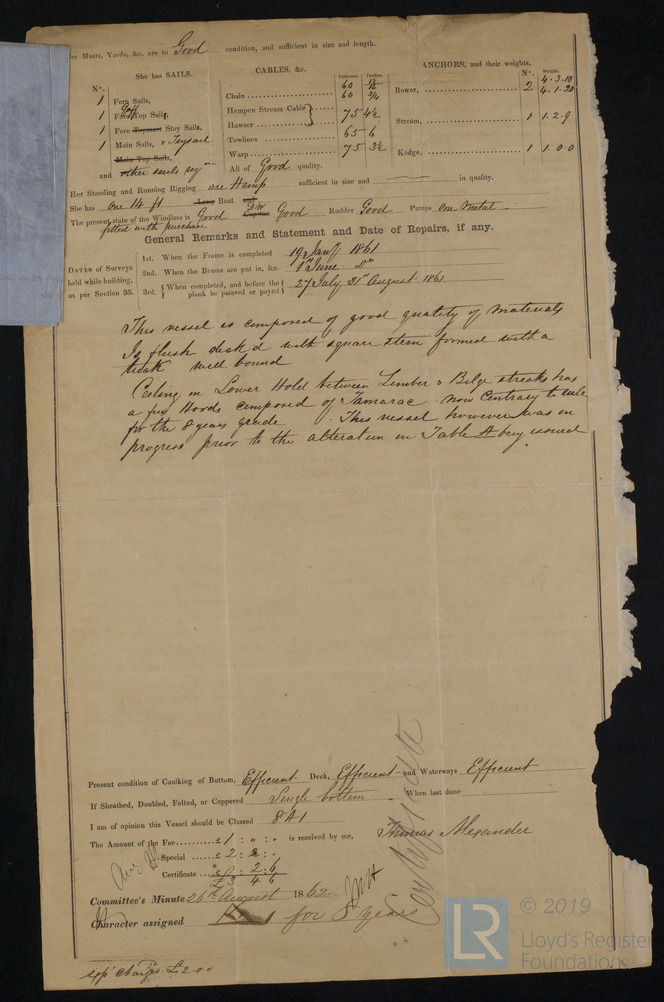 er Masts, Yards, &c. are in Good condition, and sufficient in size and length.
She has SAILS.
CABLES, &c.
ANCHORS, and their weights.
N°.
Fathoms. Inches.
N°. Weight.
1 Fore Sails,
Chain 60
60 3/4
Bower, 2 4.3.10
4.1.20
1 Fore Gaff Top Sails,
Hempen Stream Cable
Hawser 75 4½
Stream, 1 1.2.9
1 Fore Topmast Stay Sails,
Towlines 65 6
1 Main Sails, & Trysail
Warp 75 3½
Kedge, 1 1.0.0
Main Top Sails,
and other sails
All of Good quality.
Her Standing and Running Rigging are Hemp sufficient in size and in quality.
She has one 14 ft Long Boat and
The present state of the Windlass is Good Capstan Good Rudder Good Pumps one metal
fitted with purchase
General Remarks and Statement and Date of Repairs, if any.
DATES of Surveys held while building, as per Section 35.
1st. When the Frame is completed 19 Jany 1861
2nd. When the Beams are put in, &c. 1st June Do
3rd. { When completed, and before the plank be painted or payed } 27 July 31st August 1861
This vessel is composed of good quality of materials
Is flush deck'd with square stern formed with a
well bound
Ceiling in Lower Hold between Limber & Bilge streaks has
a few Hoods composed of Tamarac now Contrary to rule
for the 8 years grade. This vessel however was in
progress prior to the alteration in Table A being issued
Present condition of Caulking of Bottom, Efficient Deck, Efficient and Waterways Efficient
If Sheathed, Doubled, Felted, or Coppered Single bottom When last done
I am of opinion this Vessel should be Classed 8 A 1
The Amount of the Fee £1 : " : " is received by me,
Thomas Alexander
Special £ 2 : 2 : -
Certificate : 2 : 6
£3 4 6
Committee's Minute 26th August 1862
Character assigned A 1 for 8 years
£2.0.0
LR
© 2019
Lloyd's Register
Foundation